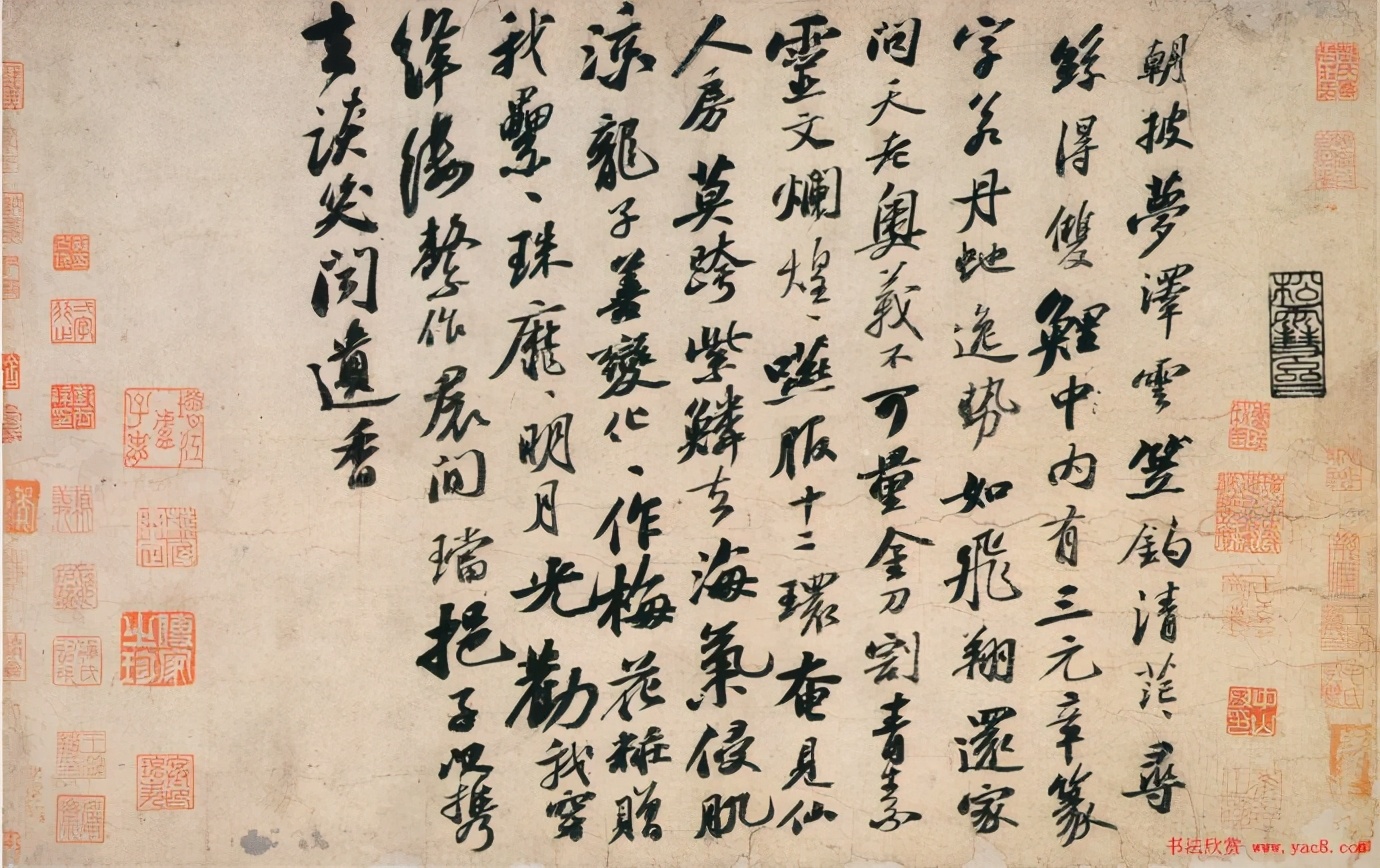 朝披夢澤雲笠釣清茫、尋
絲得雙鯉中内有三元章篆
字若丹虵逸勢如飛翔還家
問天老奧義不可量金刀割青素
靈文爛煌、嚥服十二環奄見仙
人房莫跨紫鱗去海氣侵肌
涼龍子善變化、作梅花粧贈
我纍、珠靡、明月光勸我穿
絳縷繫作裠間璫挹子以携
去談笑聞遺香
书法欣赏 www.yac8.com